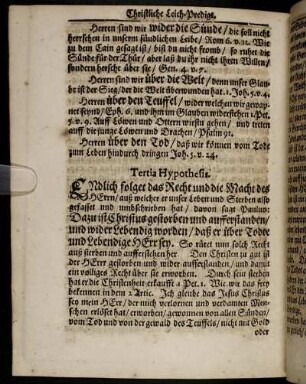 Christliche Leich-Predigt.
Herren sind wir wider die Sünde / die soll nicht
herrschen in unserm sündlichen Leibe / Rom 6. v. 12. Wie
zu dem Cain gesagt ist / bist du nicht fromb / so ruhet die
Sünde für der Thür / aber laß du ihr nicht ihren Willen /
sondern hersche über sie / Gen. 4. v. 7.
Herren sind wir über die Welt / denn unser Glau-
be ist der Sieg / der die Welt überwunden hat. 1. Joh. 5. v. 4.
Herren über den Teuffel / wider welchen wir gewap-
net seynd / Eph. 6. und ihm im Glauben widerstehen 1. Pet.
5. v. 9. Auff Löwen und Ottern wirstu gehen / und treten
auff die junge Löwen und Drachen / Psalm 91.
Herren über den Tod / daß wir können vom Tode
zum Leben hindurch dringen Joh. 5. v. 24.
Tertia Hypothesis.
Endlich folget das Recht und die Macht des
HErrn / auß welcher er unser Leben und Sterben also
gefasset und umbschrieben hat / davon sagt Paulus:
Dazu ist Christus gestorben und aufferstanden /
und wider Lebendig worden / daß er über Todte
und Lebendige HErr sey. So rüret nun solch Recht
auß sterben und aufferstehen her. Den Christen zu gut ist
der HErr gestorben und wider aufferstanden / und damit
ein völliges Recht über sie erworben. Durch sein sterben
hat er die Christenheit erkaufft 1 Pet. 1. Wie wir das frey
bekennen in dem 2 Artic. Ich gleube das Jesus Christus
sey mein HErr / der mich verlornen und verdamten Men-
schen erlöset hat / erworben / gewonnen von allen Sünden /
vom Tod und von der gewald des Teuffels / nicht mit Gold
oder